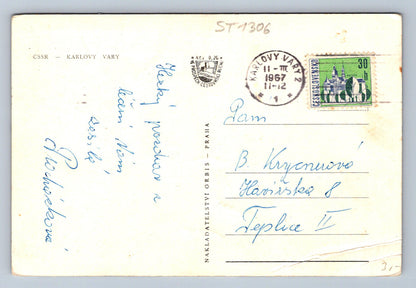 ST 1306
ČSSR - KARLOVY VARY
KARLOVY VARY 2
11-III
1967
11-12
1
ČESKOSLOVENSKO
30
h
Hezký pozdrav z
lázní Vám
posílá
NAKLADATELSTVÍ ORBIS - PRAHA
Paní
B.
Havířská 8
Teplice II
3,-